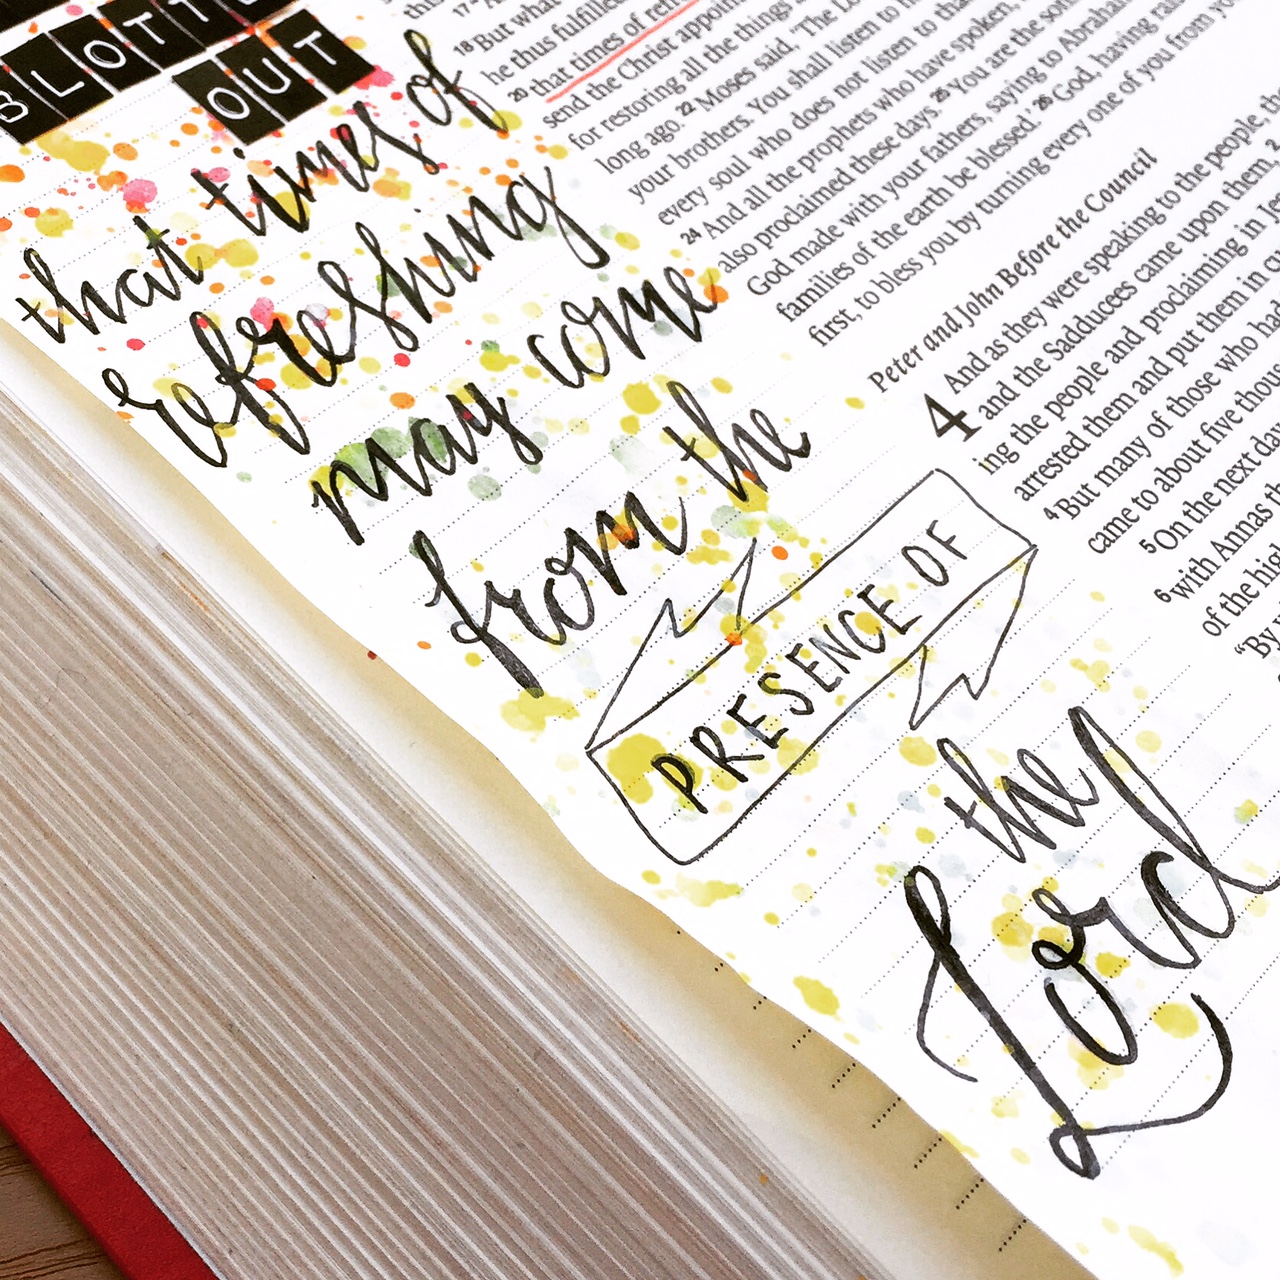 BLOTTE
OUT
that times of
refreshing
may come
from the
PRESENCE OF
the
Lord
this
17
18 But what
he thus fulfilled
20 that times of
send the Christ appoin
for restoring all the things
long ago. 22 Moses said, 'The Lo
your brothers. You shall listen to
every soul who does not listen to tha
24 And all the prophets who have spoken,
also proclaimed these days. 25 You are the son
God made with your fathers, saying to Abraha
families of the earth be blessed.' 26 God, having rai
first, to bless you by turning every one of you from yo
Peter and John Before the Council
4 And as they were speaking to the people, th
and the Sadducees came upon them, 2
ing the people and proclaiming in Jes
arrested them and put them in cu
4 But many of those who had
came to about five thou
5 On the next da
6 with Annas th
of the hig
"By